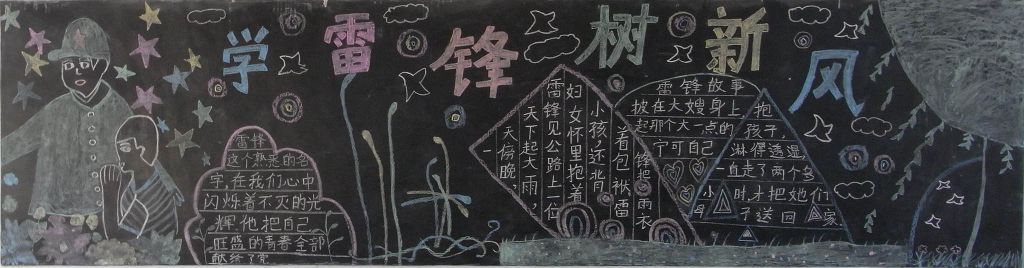 学雷锋树新风
雷锋
这个熟悉的名
字,在我们心中
闪烁着不灭的光
辉他把自己
旺盛的青春全部
献给了党
一天傍晚,
天下起大雨,
雷锋见公路上一位
妇女怀里抱着
小孩,还背
着包袱雷
锋把雨衣
雷锋故事
披在大嫂身上,抱
起那个大一点的孩子,
宁可自己淋得透湿
一直走了两个多
小时才把她们
送回家